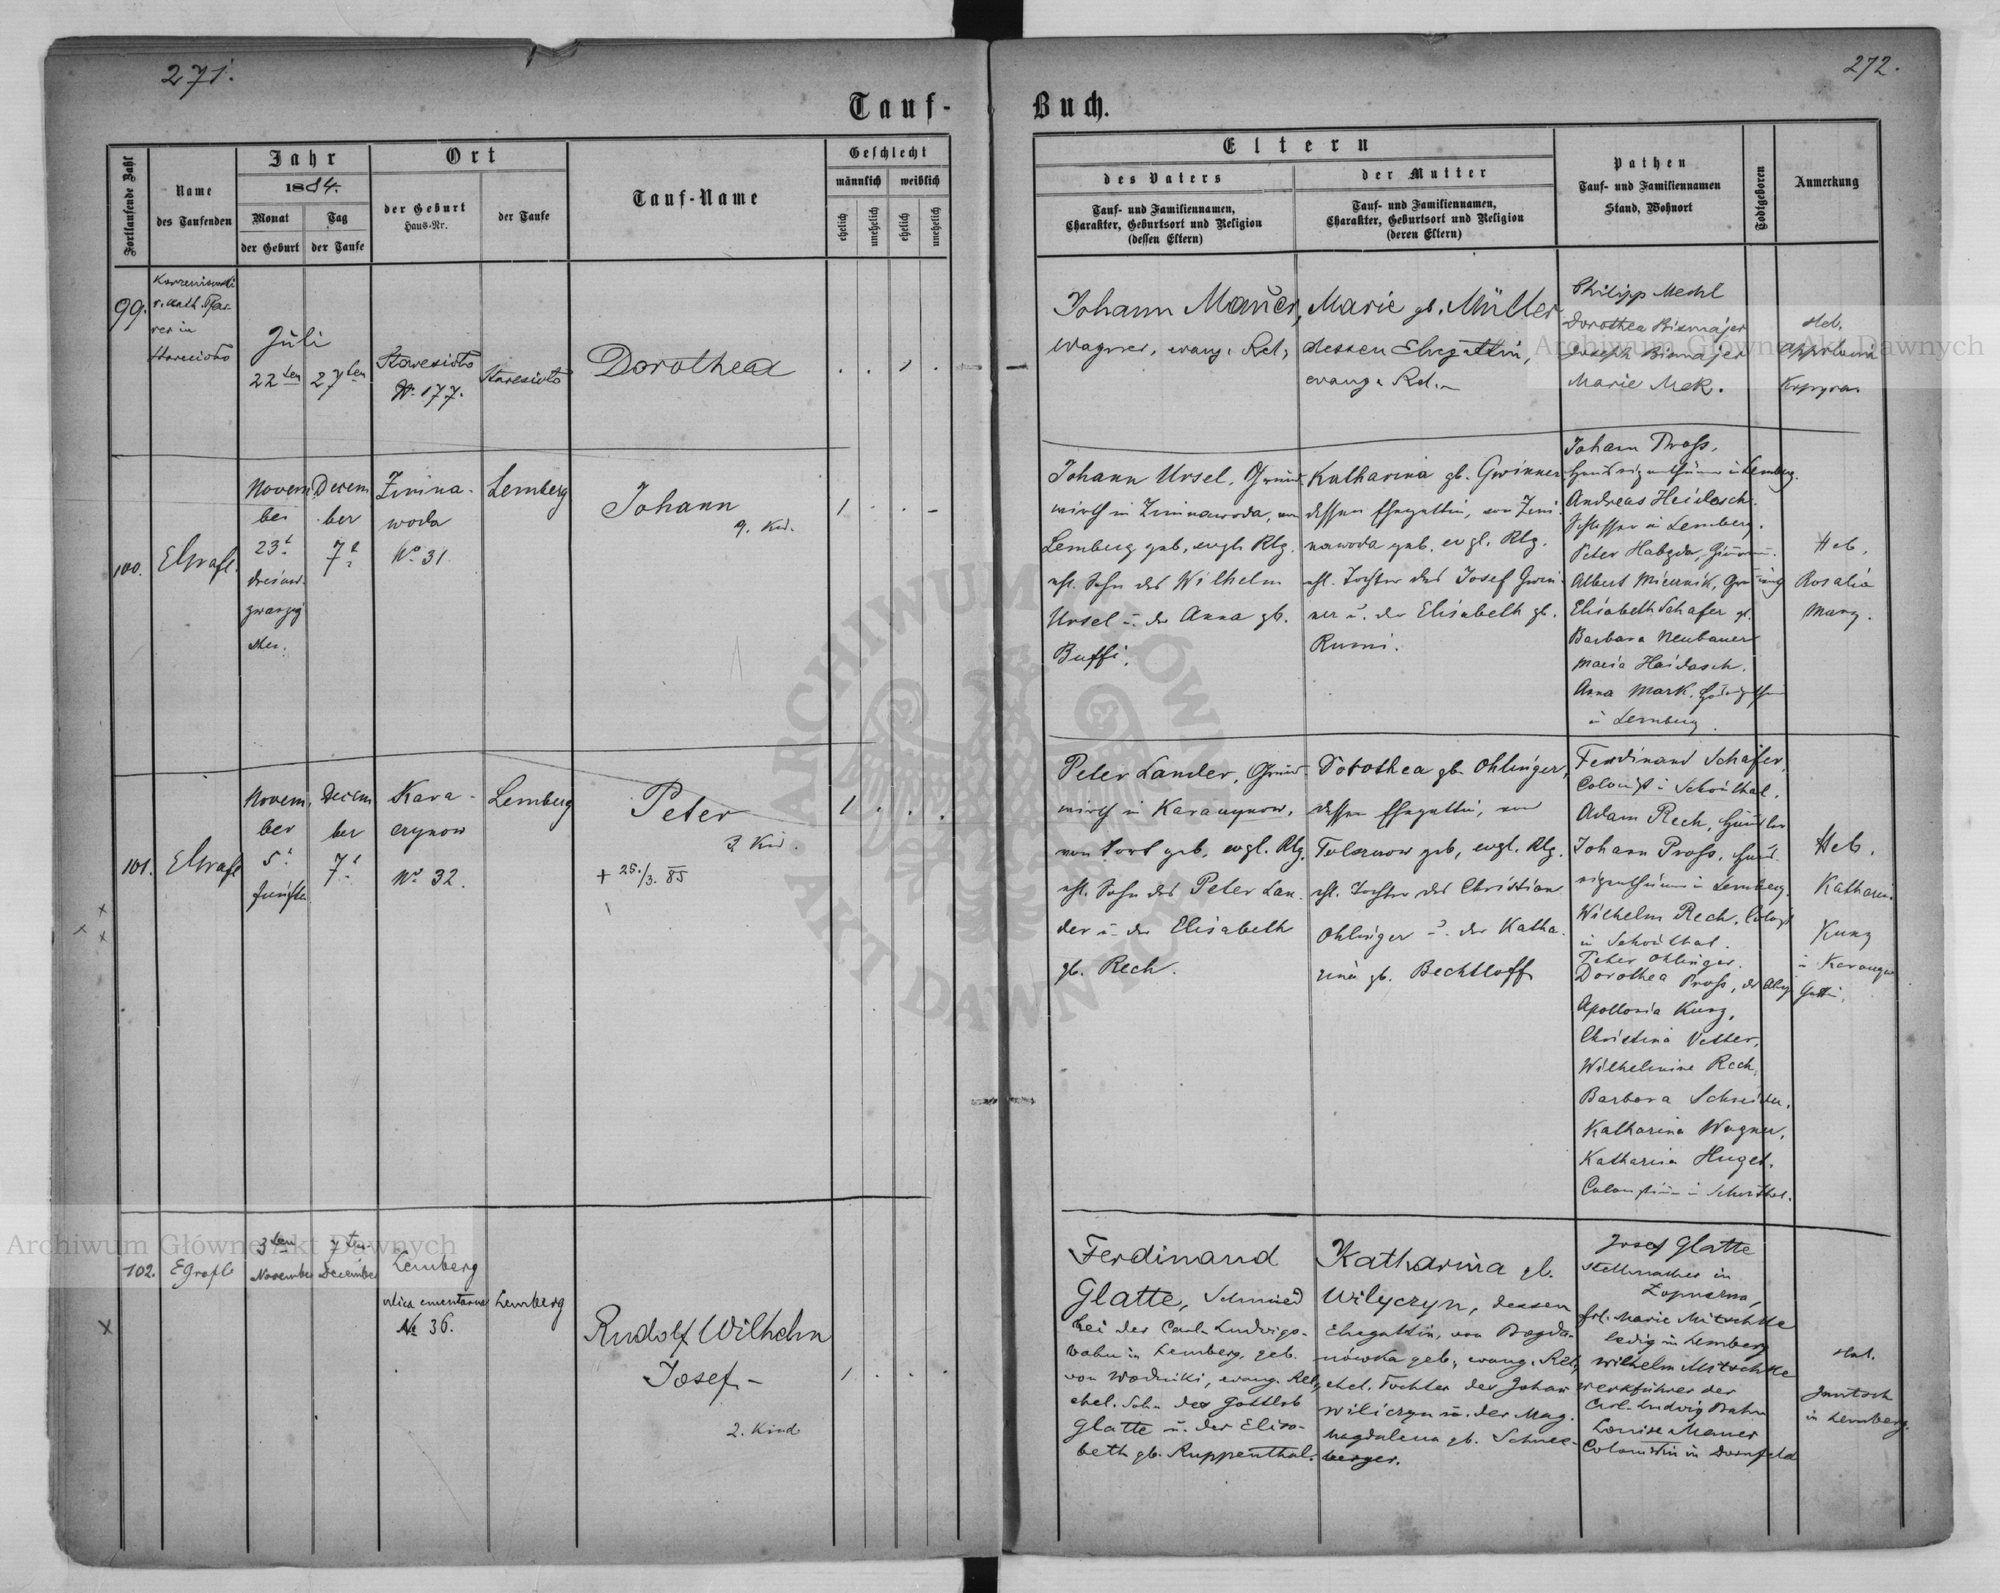 271.
272.
Tauf-
Buch.
Fortlaufende Zahl
Name
des Taufenden
Jahr
1884.
Monat
der Geburt
Tag
der Taufe
Ort
der Geburt
Haus-Nr.
der Taufe
Tauf-Name
Geschlecht
männlich
weiblich
ehelich
unehelich
ehelich
unehelich
Eltern
des Vaters
Tauf- und Familiennamen,
Charakter, Geburtsort und Religion
(dessen Eltern)
der Mutter
Tauf- und Familiennamen,
Charakter, Geburtsort und Religion
(deren Eltern)
Pathen
Tauf- und Familiennamen
Stand, Wohnort
Todtgeboren
Anmerkung
99.
r. kath. Pfar-
rer in
Juli
22ten
27ten
Staresioło
N. 177.
Staresioło
Dorothea
Johann Mauer,
Wagner, evang. Rel.,
Marie gb. Müller
dessen Ehegattin,
evang. Rel.
Philipp Mechl
Dorothea Bismajer
Joseph Bismajer
Marie Mek.
Heb.
100.
EGrafl.
Novem
ber
23t
Dreiund
zwanzig
stes.
Decem
ber
7t
Zimna-
woda
No 31.
Lemberg
Johann
9. Kd.
1
Johann Ursel, Grund-
wirth in Zimnawoda, von
Lemberg geb. evgl. Rlg.
ehl. Sohn des Wilhelm
Ursel u. der Anna gb.
Buffi.
Katharina gb. Gwinner
dessen Ehegattin, von Zim-
nawoda geb. evgl. Rlg.
ehl. Tochter des Josef Gwin-
ner u. der Elisabeth gb.
Rumi.
Johann Pross,
Hauseigenthümer in Lemberg.
Andreas Heidasch
Schlosser in Lemberg.
Peter Habyda,
Albert Miernik,
Elisabeth Schafer gb.
Barbara Neubauer
Maria Haidasch.
Anna Mark.
in Lemberg.
Heb.
Rosalia
Mang.
101.
EGrafl
Novem
ber
5t
fünfte
Decem
ber
7t
Kara-
czynow
No 32.
Lemberg
Peter
3. Kd.
+ 25./3. 85
1
Peter Lander, Grund-
wirth in Karaczynow,
von dort geb. evgl. Rlg.
ehl. Sohn des Peter Lan-
der u. der Elisabeth
gb. Rech.
Dorothea gb. Ohlinger,
dessen Ehegattin, von
geb. evgl. Rlg.
ehl. Tochter des Christian
Ohlinger u. der Katha-
rina gb. Bechtloff
Ferdinand Schäfer,
Colonist in Schönthal.
Adam Rech,
Johann Pross, Haus-
eigenthümer in Lemberg.
Wilhelm Rech,
in Schönthal.
Peter Ohlinger.
Dorothea Pross,
Apollonia Kunz,
Christina Vetter,
Wilhelmine Rech,
Barbara Schneider,
Katharina Wagner,
Katharina Huget.
in Schönthal.
Heb.
Katharina
Kunz
102.
EGrafl
3ten
November
7ten
December
Lemberg
ulica cmentarna
No 36.
Lemberg
Rudolf Wilhelm
Josef.-
2. Kind
1
Ferdinand
Glatte, Schmied
bei der Carl Ludwigs-
bahn in Lemberg, geb.
von Wodniki, evang. Rel.,
ehel. Sohn des Gottlob
Glatte u. der Elisa-
beth gb. Ruppenthal.
Katharina gb.
Wilyczyn, dessen
Ehegattin, von Bogda-
nówka geb., evang. Rel.,
ehel. Tochter des Johan
Wiliczyn u. der Mag-
magdalena gb. Schnee-
berger.
Josef Glatte
Stellmacher in
frl. Marie Mitschke
ledig in Lemberg
Wilhelm Mitschke
Werkführer der
Carl-Ludwig Bahn
Louise Mauer
Colonistin in Dornfeld
Heb.
Jantsch
in Lemberg.
Archiwum Główne Akt Dawnych
Archiwum Główne Akt Dawnych
ARCHIWUM GŁÓWNE AKT DAWNYCH